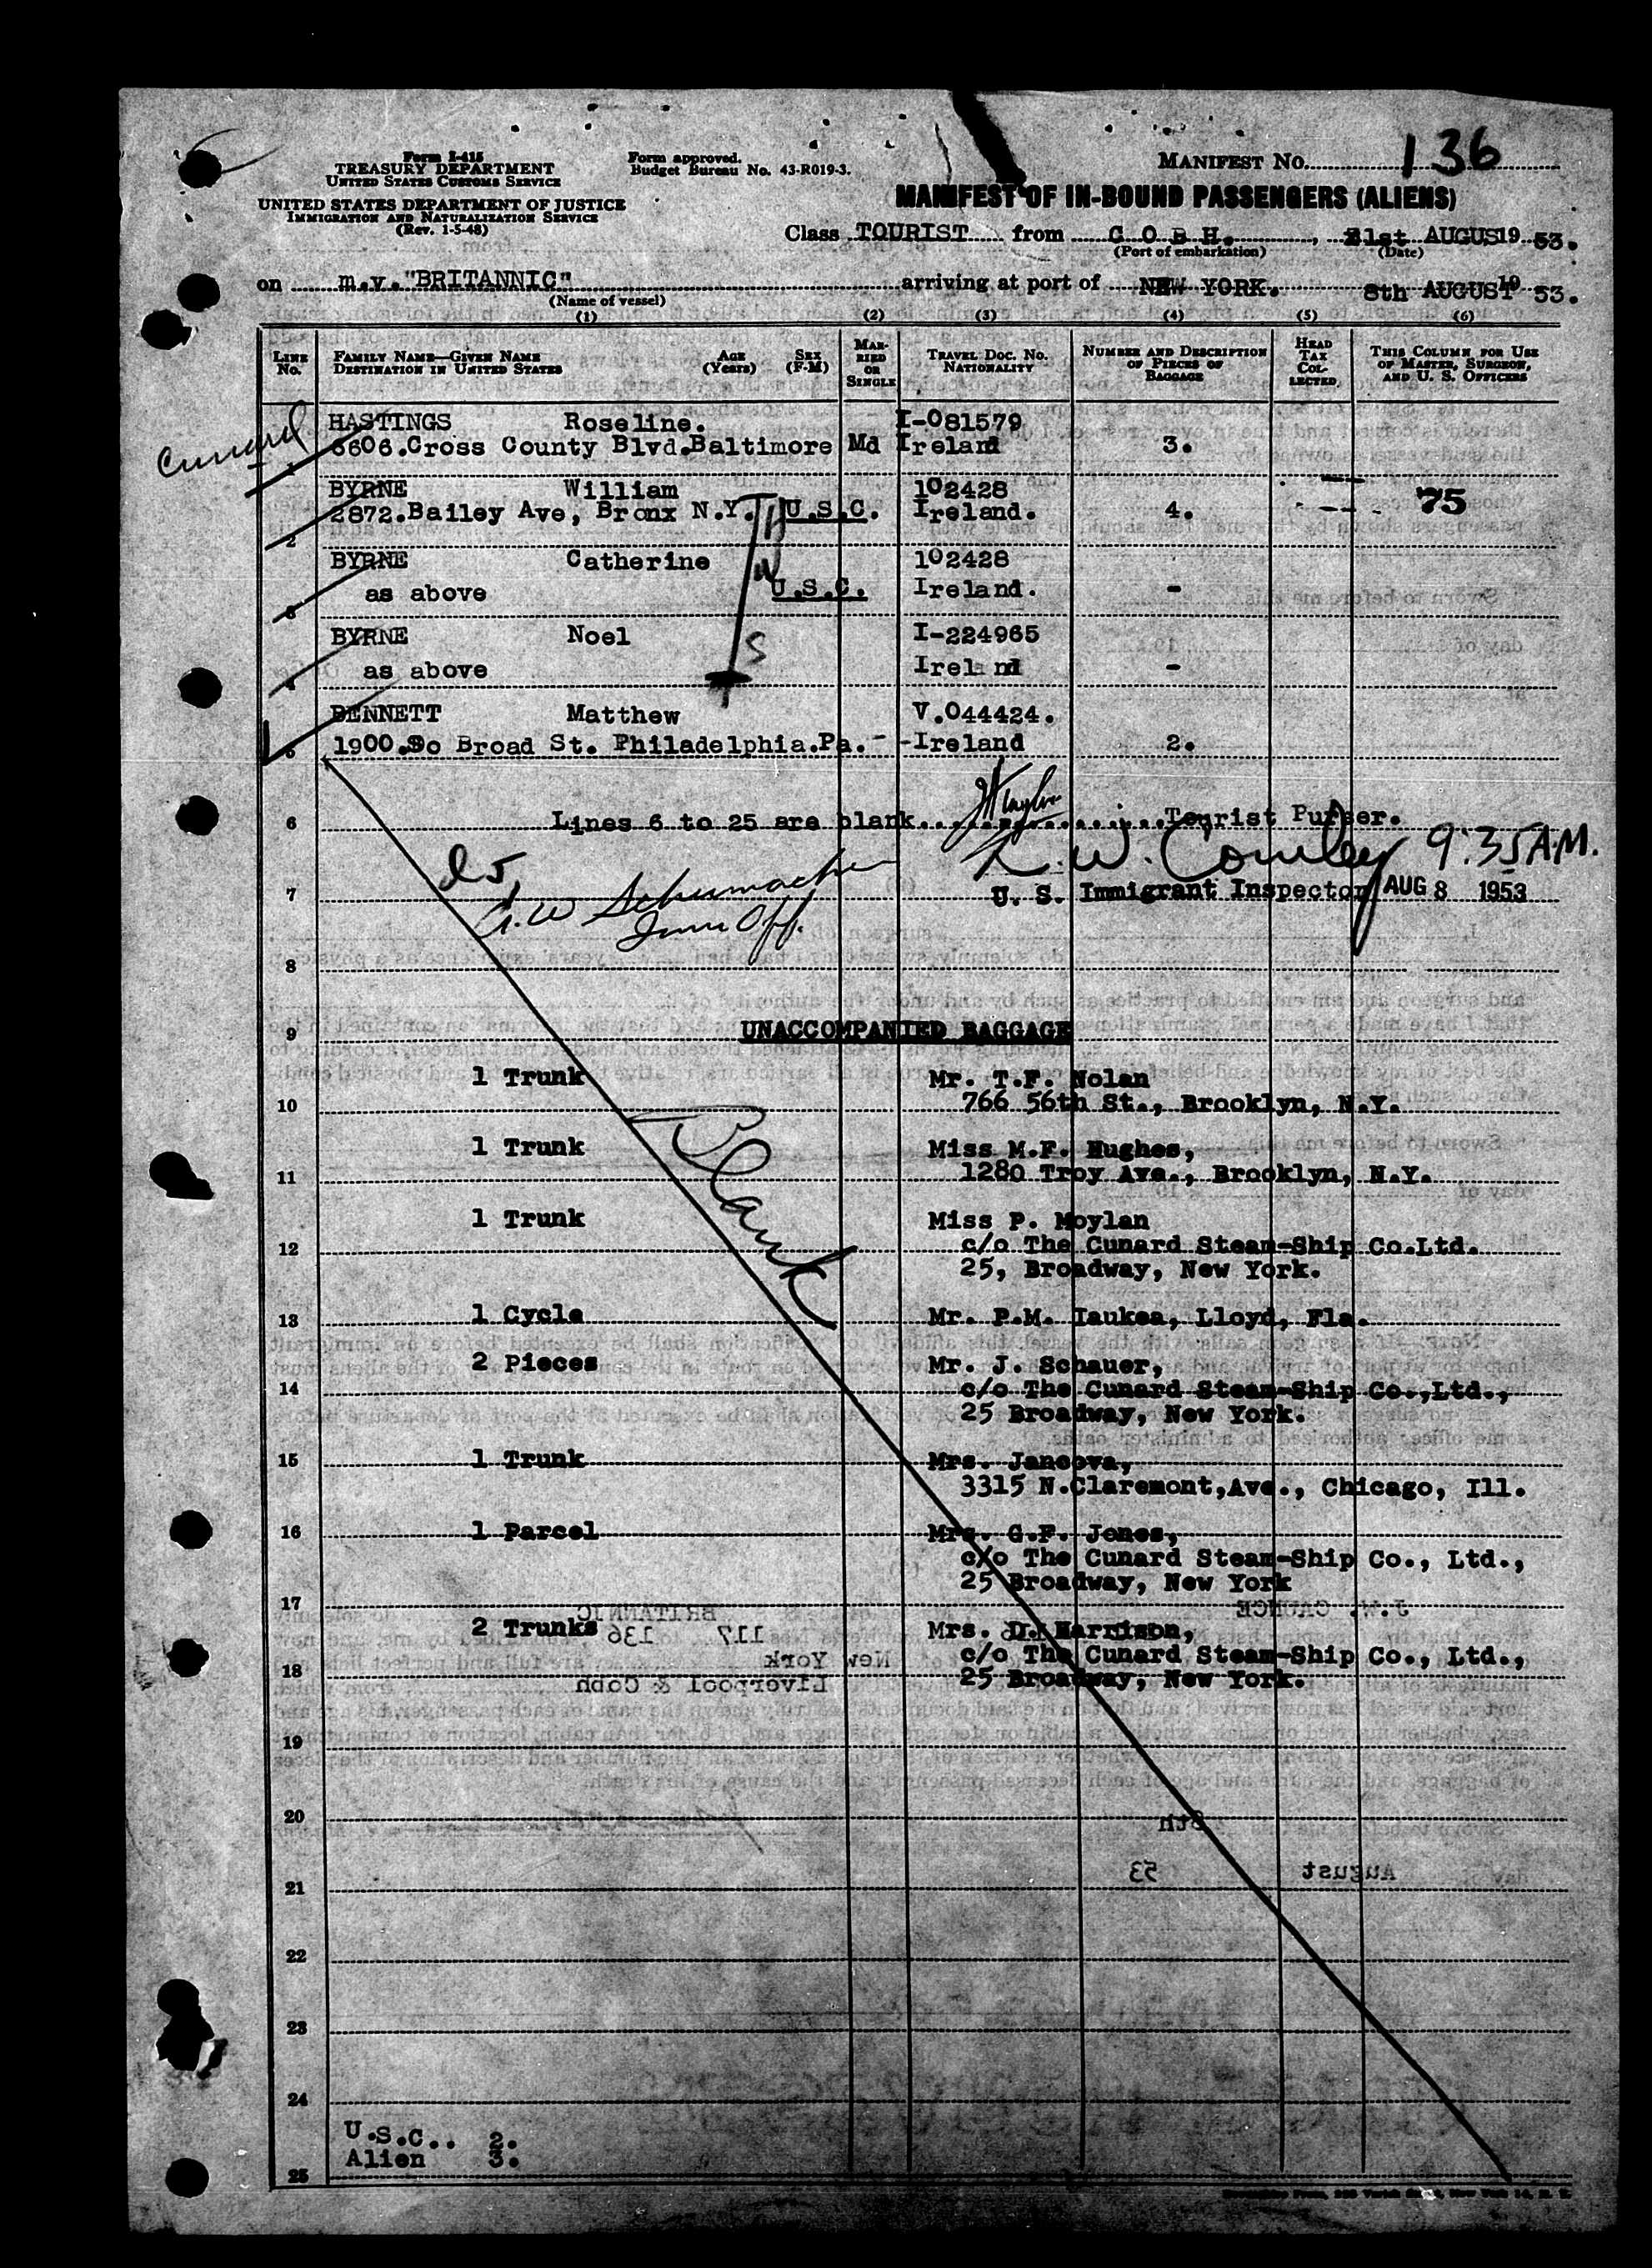 Form I-415
TREASURY DEPARTMENT
UNITED STATES CUSTOMS SERVICE
UNITED STATES DEPARTMENT OF JUSTICE
IMMIGRATION AND NATURALIZATION SERVICE
(Rev. 1-5-48)
Form approved.
Budget Bureau No. 43-R019-3.
MANIFEST NO. 136
MANIFEST OF IN-BOUND PASSENGERS (ALIENS)
Class TOURIST from C O B H. , AUGUS 19 53.
(Port of embarkation) (Date)
on m.v. "BRITANNIC" arriving at port of NEW YORK. 8th AUGUST 19 53.
(Name of vessel)
(1) (2) (3) (4) (5) (6)
LINE No. FAMILY NAME—GIVEN NAME DESTINATION IN UNITED STATES AGE (Years) SEX (F-M) MARRIED OR SINGLE TRAVEL DOC. NO. NATIONALITY NUMBER AND DESCRIPTION OF PIECES OF BAGGAGE HEAD TAX COLLECTED THIS COLUMN FOR USE OF MASTER, SURGEON, AND U. S. OFFICERS
Cunard
HASTINGS Roseline. I-081579
1 6606.Cross County Blvd.Baltimore Md Ireland 3.
BYRNE William 102428 75
2 2872.Bailey Ave, Bronx N.Y. H U.S.C. Ireland. 4. - -- -
BYRNE Catherine W 102428
3 as above U.S.C. Ireland. -
BYRNE Noel S I-224965
4 as above Irel nd -
BENNETT Matthew V.044424.
5 1900.So Broad St. Philadelphia.Pa.- -Ireland 2.
6 Lines 6 to 25 are blank. Tourist Purser.
R. W. Cowley 9:35 A.M.
7 U. S. Immigrant Inspector AUG 8 1953
A.W Schumacher
Imm Off.
8
9 UNACCOMPANIED BAGGAGE
1 Trunk Mr. T.F. Nolan
10 766 56th St., Brooklyn, N.Y.
1 Trunk Miss M.F. Hughes,
11 1280 Troy Ave., Brooklyn, N.Y.
Blank
1 Trunk Miss P. Moylan
12 c/o The Cunard Steam-Ship Co.Ltd.
25, Broadway, New York.
13 1 Cycle Mr. P.M. Iaukea, Lloyd, Fla.
2 Pieces Mr. J. Schauer,
14 c/o The Cunard Steam-Ship Co.,Ltd.,
25 Broadway, New York.
15 1 Trunk Mrs. Jancova,
3315 N.Claremont,Ave., Chicago, Ill.
16 1 Parcel Mrs. G.F. Jones,
c/o The Cunard Steam-Ship Co., Ltd.,
25 Broadway, New York
17
2 Trunks Mrs. D. Harrison,
18 c/o The Cunard Steam-Ship Co., Ltd.,
25 Broadway, New York.
19
20
21
22
23
24
U.S.C.. 2.
Alien 3.
25